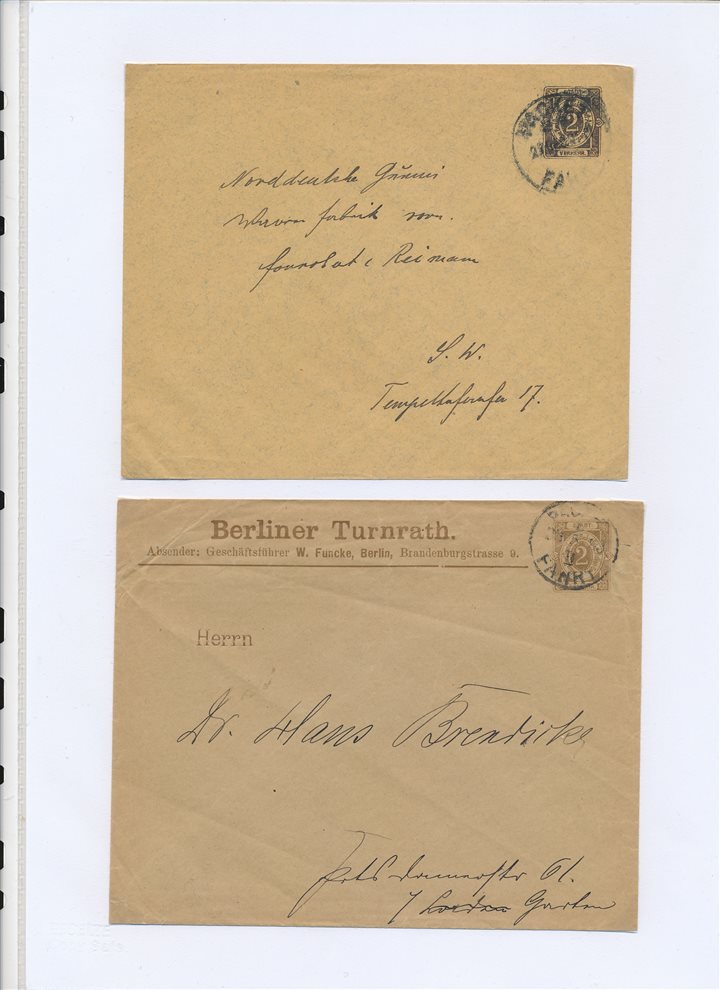 PACKET
2
VERKEHR.
FA
Norddeutsche Gŭmmi
Waaren fabrik vorm.
Fonrobert & Reimann
S. W.
Tempelhoferufer 17.
Berliner Turnrath.
Absender: Geschäftsführer W. Funcke, Berlin, Brandenburgstrasse 9.
2
FAHRT
Herrn
Dr. Hans Brendicke
Potsdamerstr 61.
Garten